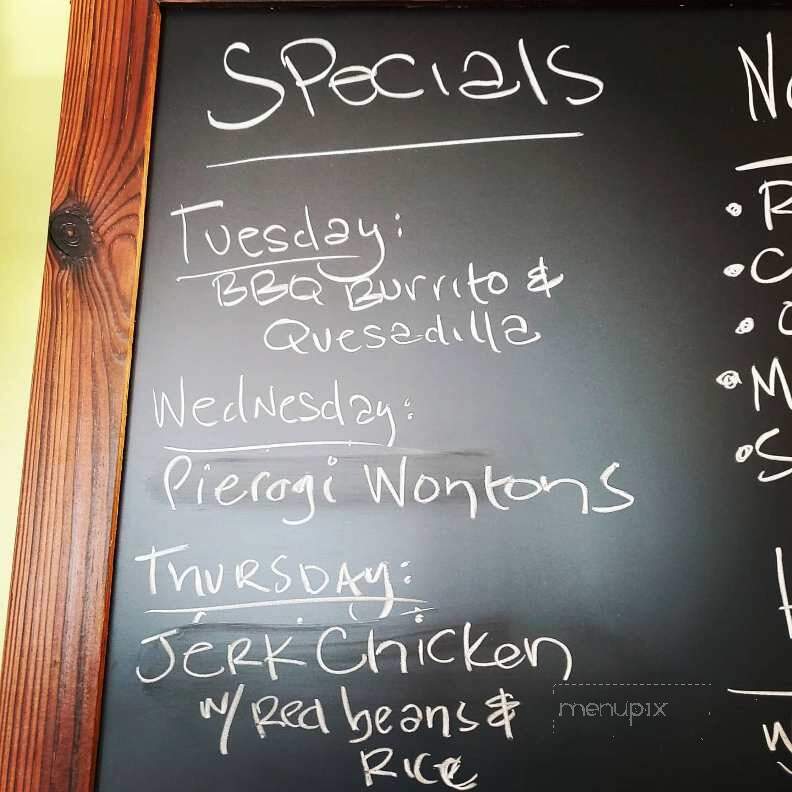 Specials
Tuesday:
BBQ Burrito &
Quesadilla
Wednesday:
Pierogi Wontons
THURSDAY:
JERK Chicken
w/ Red beans &
Rice
menupix